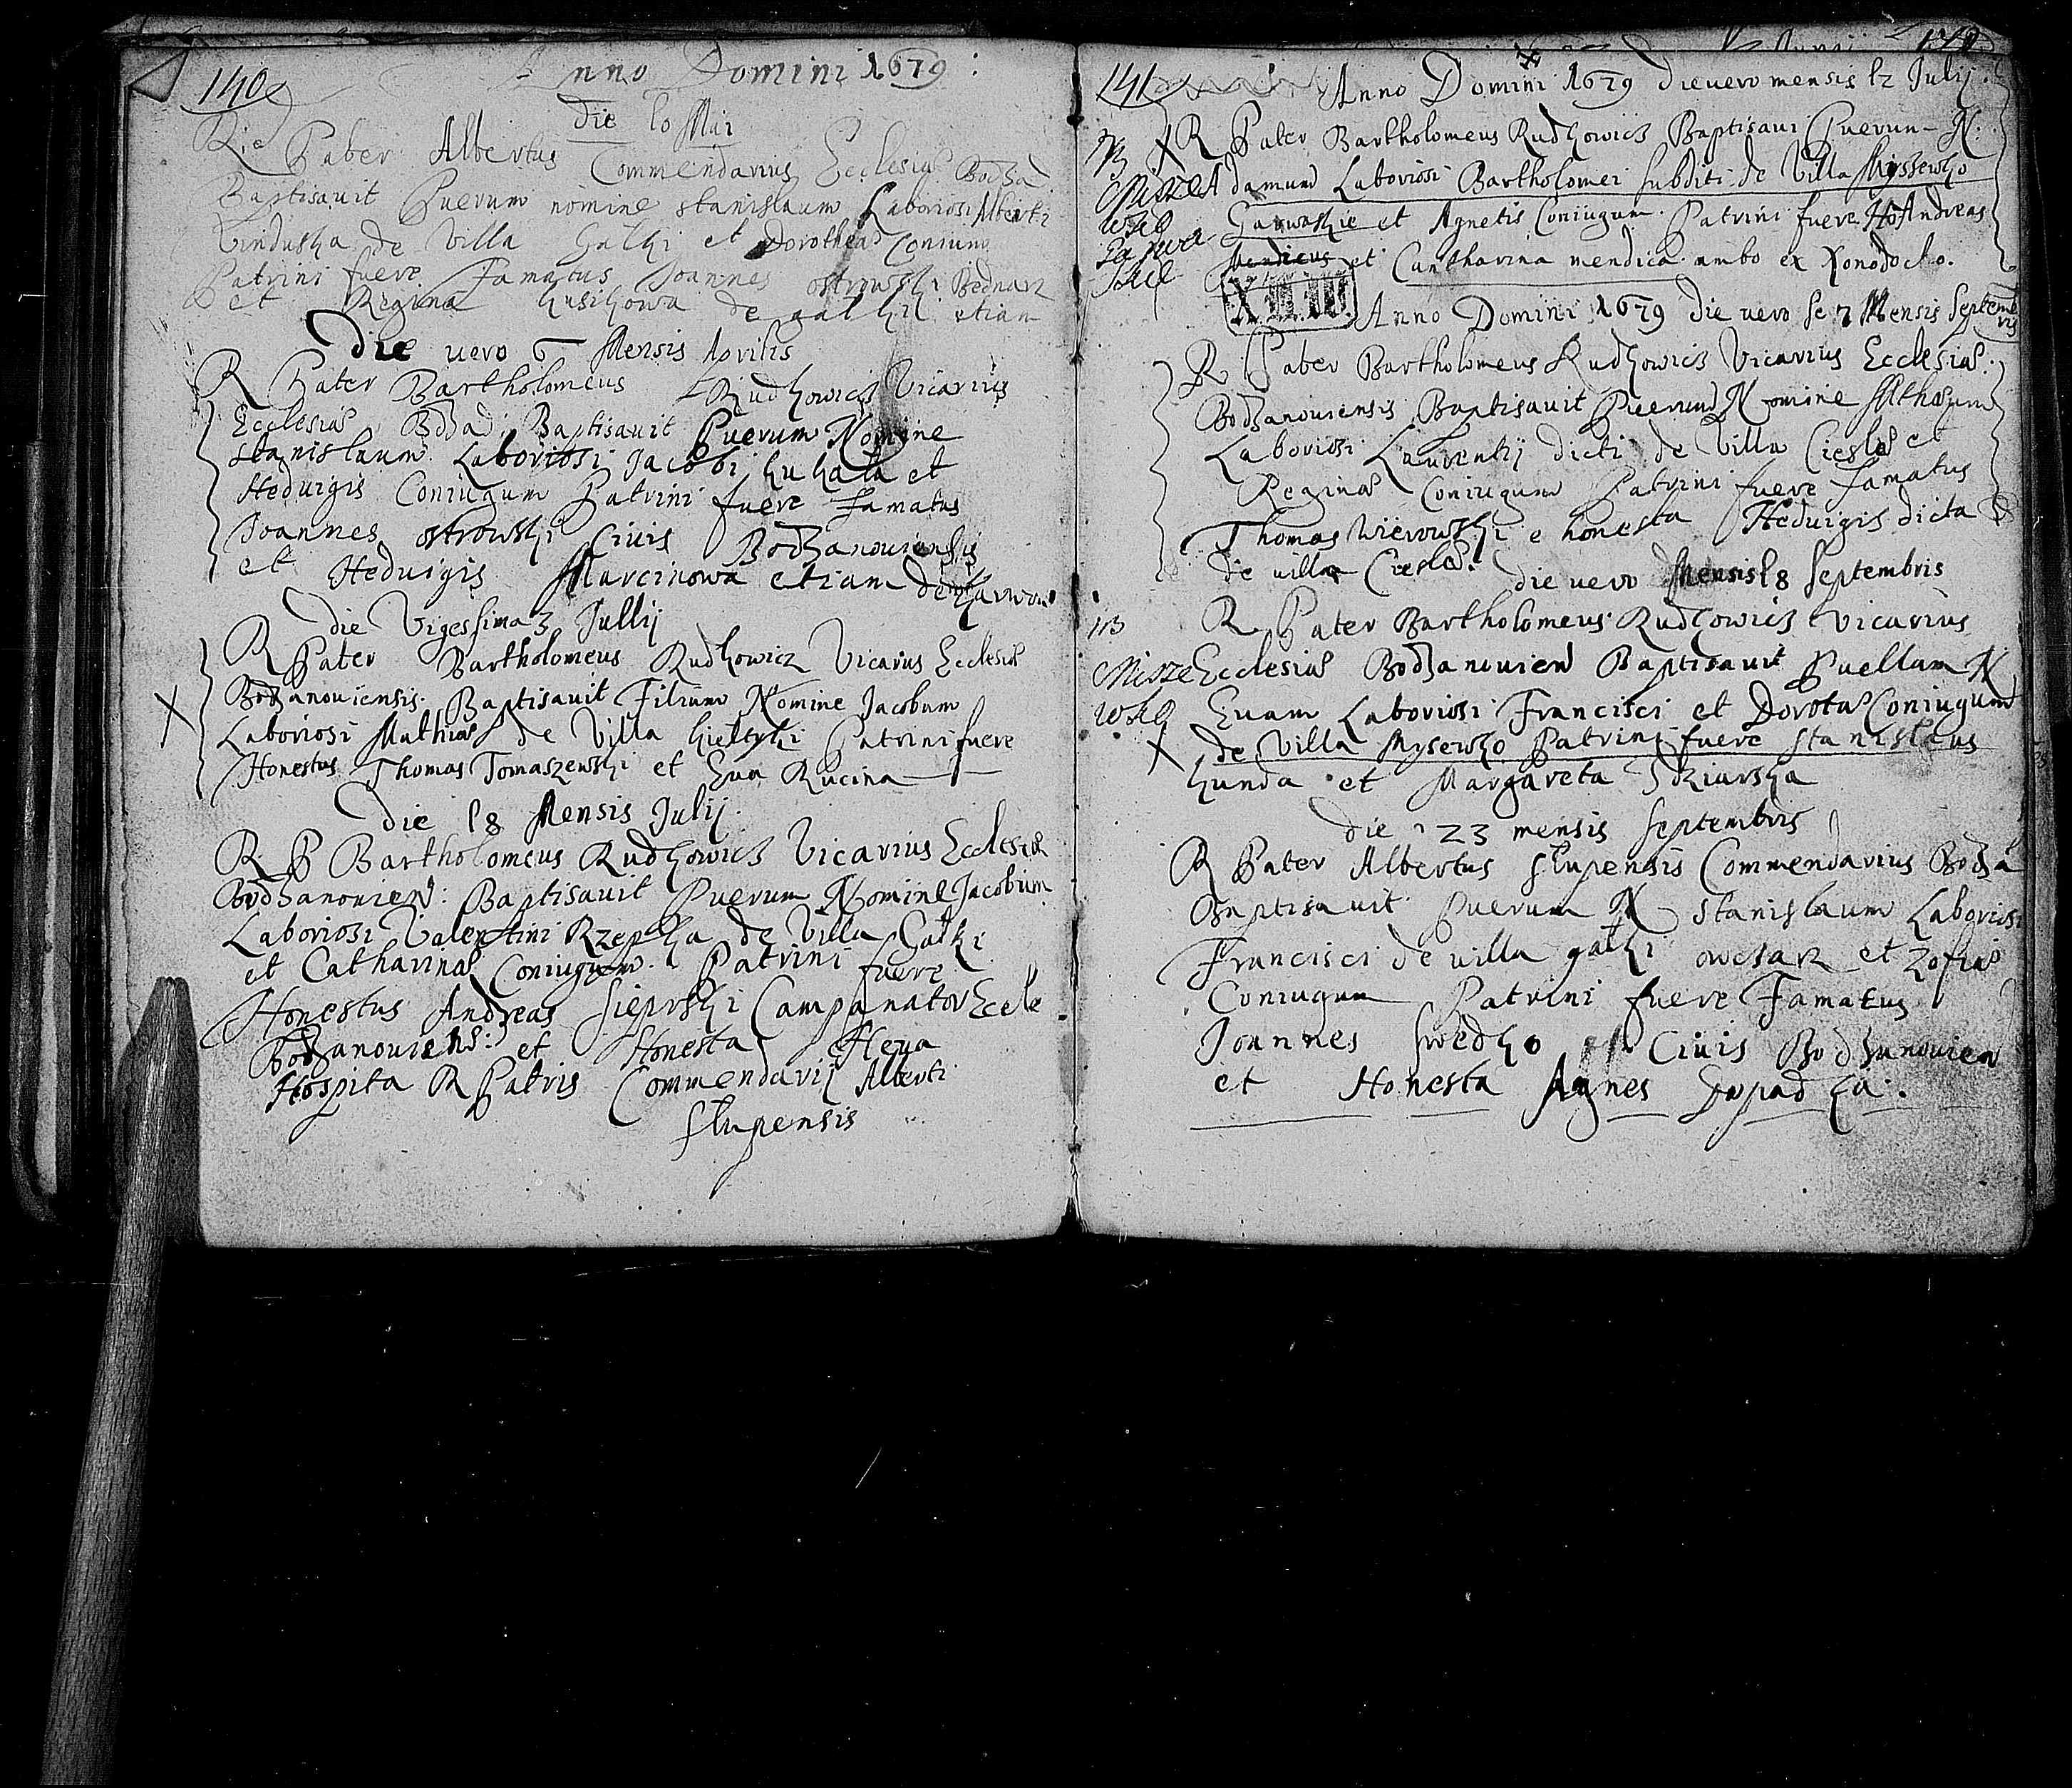 140
Anno Domini 1679:
die 10 Mai
Die Pater Albertus Commendarius Ecclesiæ Bodza
Baptisauit Puerum nomine Stanislaum Laboriosi Alberti
Vinduska de Villa Galki et Dorotheæ Coniung
Patrini fuere Famatus Joannes ostrowski Bednarz
et Regina de galkii etiam
Die uero 6 Mensis Aprilis
R Pater Bartholomeus Rudkowicz Vicarius
Ecclesiæ Bodzad: Baptisauit Puerum Nomine
Stanislaum Laboriosi Jacobi kuhata et
Heduigis Coniugum Patrini fuere Famatus
Joannes ostrowski Ciuis Bodzanouiensis
et Heduigis Marcinowa etiam de
die Vigessima 3 Jullij
R Pater Bartholomeus Rudkowicz Vicarus Ecclesiæ
X Bodzanouiensis. Baptisauit Filium Nomine Jacobum
Laboriosi Mathiæ de Villa kieltyki Patrini fuere
Honestus Thomas Tomaszewski et Eua Rucina
die 18 Mensis Julij.
R P Bartholomeus Rudkowicz Vicarius Ecclesiæ
Bodzanouien: Baptisauit Puerum Nomine Jacobum
Laboriosi Valentini Rzepka de Villa Galki
et Catharinæ Coniugum. Patrini fuere
Honestus Andreas Sieprski Campanator Eccle
Bodzanouiens: et Honesta
Hospita R Patris Commendarij Alberti
Slupensis
141
Anno Domini 1679 die uero mensis 12 Julij.
X R Pater Bartholomeus Rudkowicz Baptisaui Puerum N:
Adamum Laboriosi Bartholomei subditi de Villa MysSewko
Garwaskie et Agnetis Coniugum. Patrini fuere Ho Andreas
Mendicus et Cantharina mendica ambo ex Xonodocko.
Anno Domini 1679 die uero 7 Mensis Septembris
R Pater Bartholomeus Rudkowicz Vicarius Ecclesiæ.
Bodzanouiensis Baptisauit Puerum Nomine
Laboriosi Laurentij dicti de Villa Ciesle et
Reginæ Coniugum Patrini fuere famatus
Thomas Wierowski e honesta Heduigis dicta
de villa Ciesle.
die uero Mensis 18 Septembris
R Pater Bartholomeus Rudkowicz Vicarius
Ecclesiæ Bodzanouien Baptisauit Puellam N
Euam Laboriosi Francisci et Dorotæ Coniugum
X de Villa Mysewko Patrini fuere Stanislaus
kunda et Margareta
die 23 mensis Septembris
R Pater Albertus Slupensis Commendarius Bodza
Baptisauit Puerum N Stanislaum Laboriosi
Francisci de uilla galki owczarz et Zofiæ
Coniugum Patrini fuere Famatus
Joannes Swedko Ciuis Bodzanouien
et Honesta Agnes Dupadka.